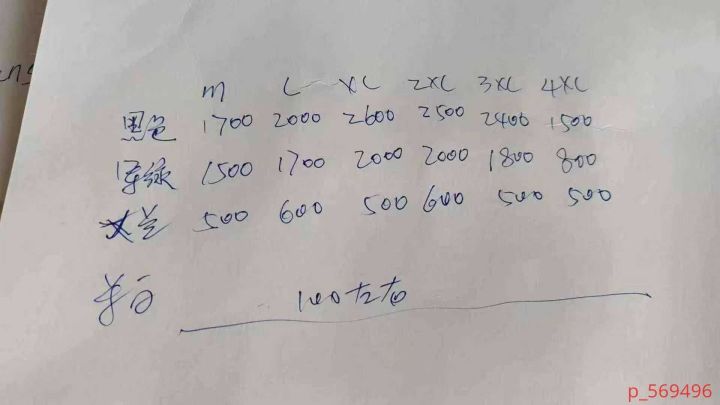 M L XL 2XL 3XL 4XL
黑色 1700 2000 2600 2500 2400 1500
军绿 1500 1700 2000 2000 1800 800
500 600 500 600 500 500
100左右
p_569496